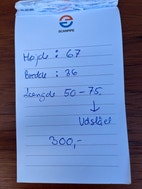 Højde : 67
Bredde : 36
Længde 50 - 75
↓
Udslået
300,-